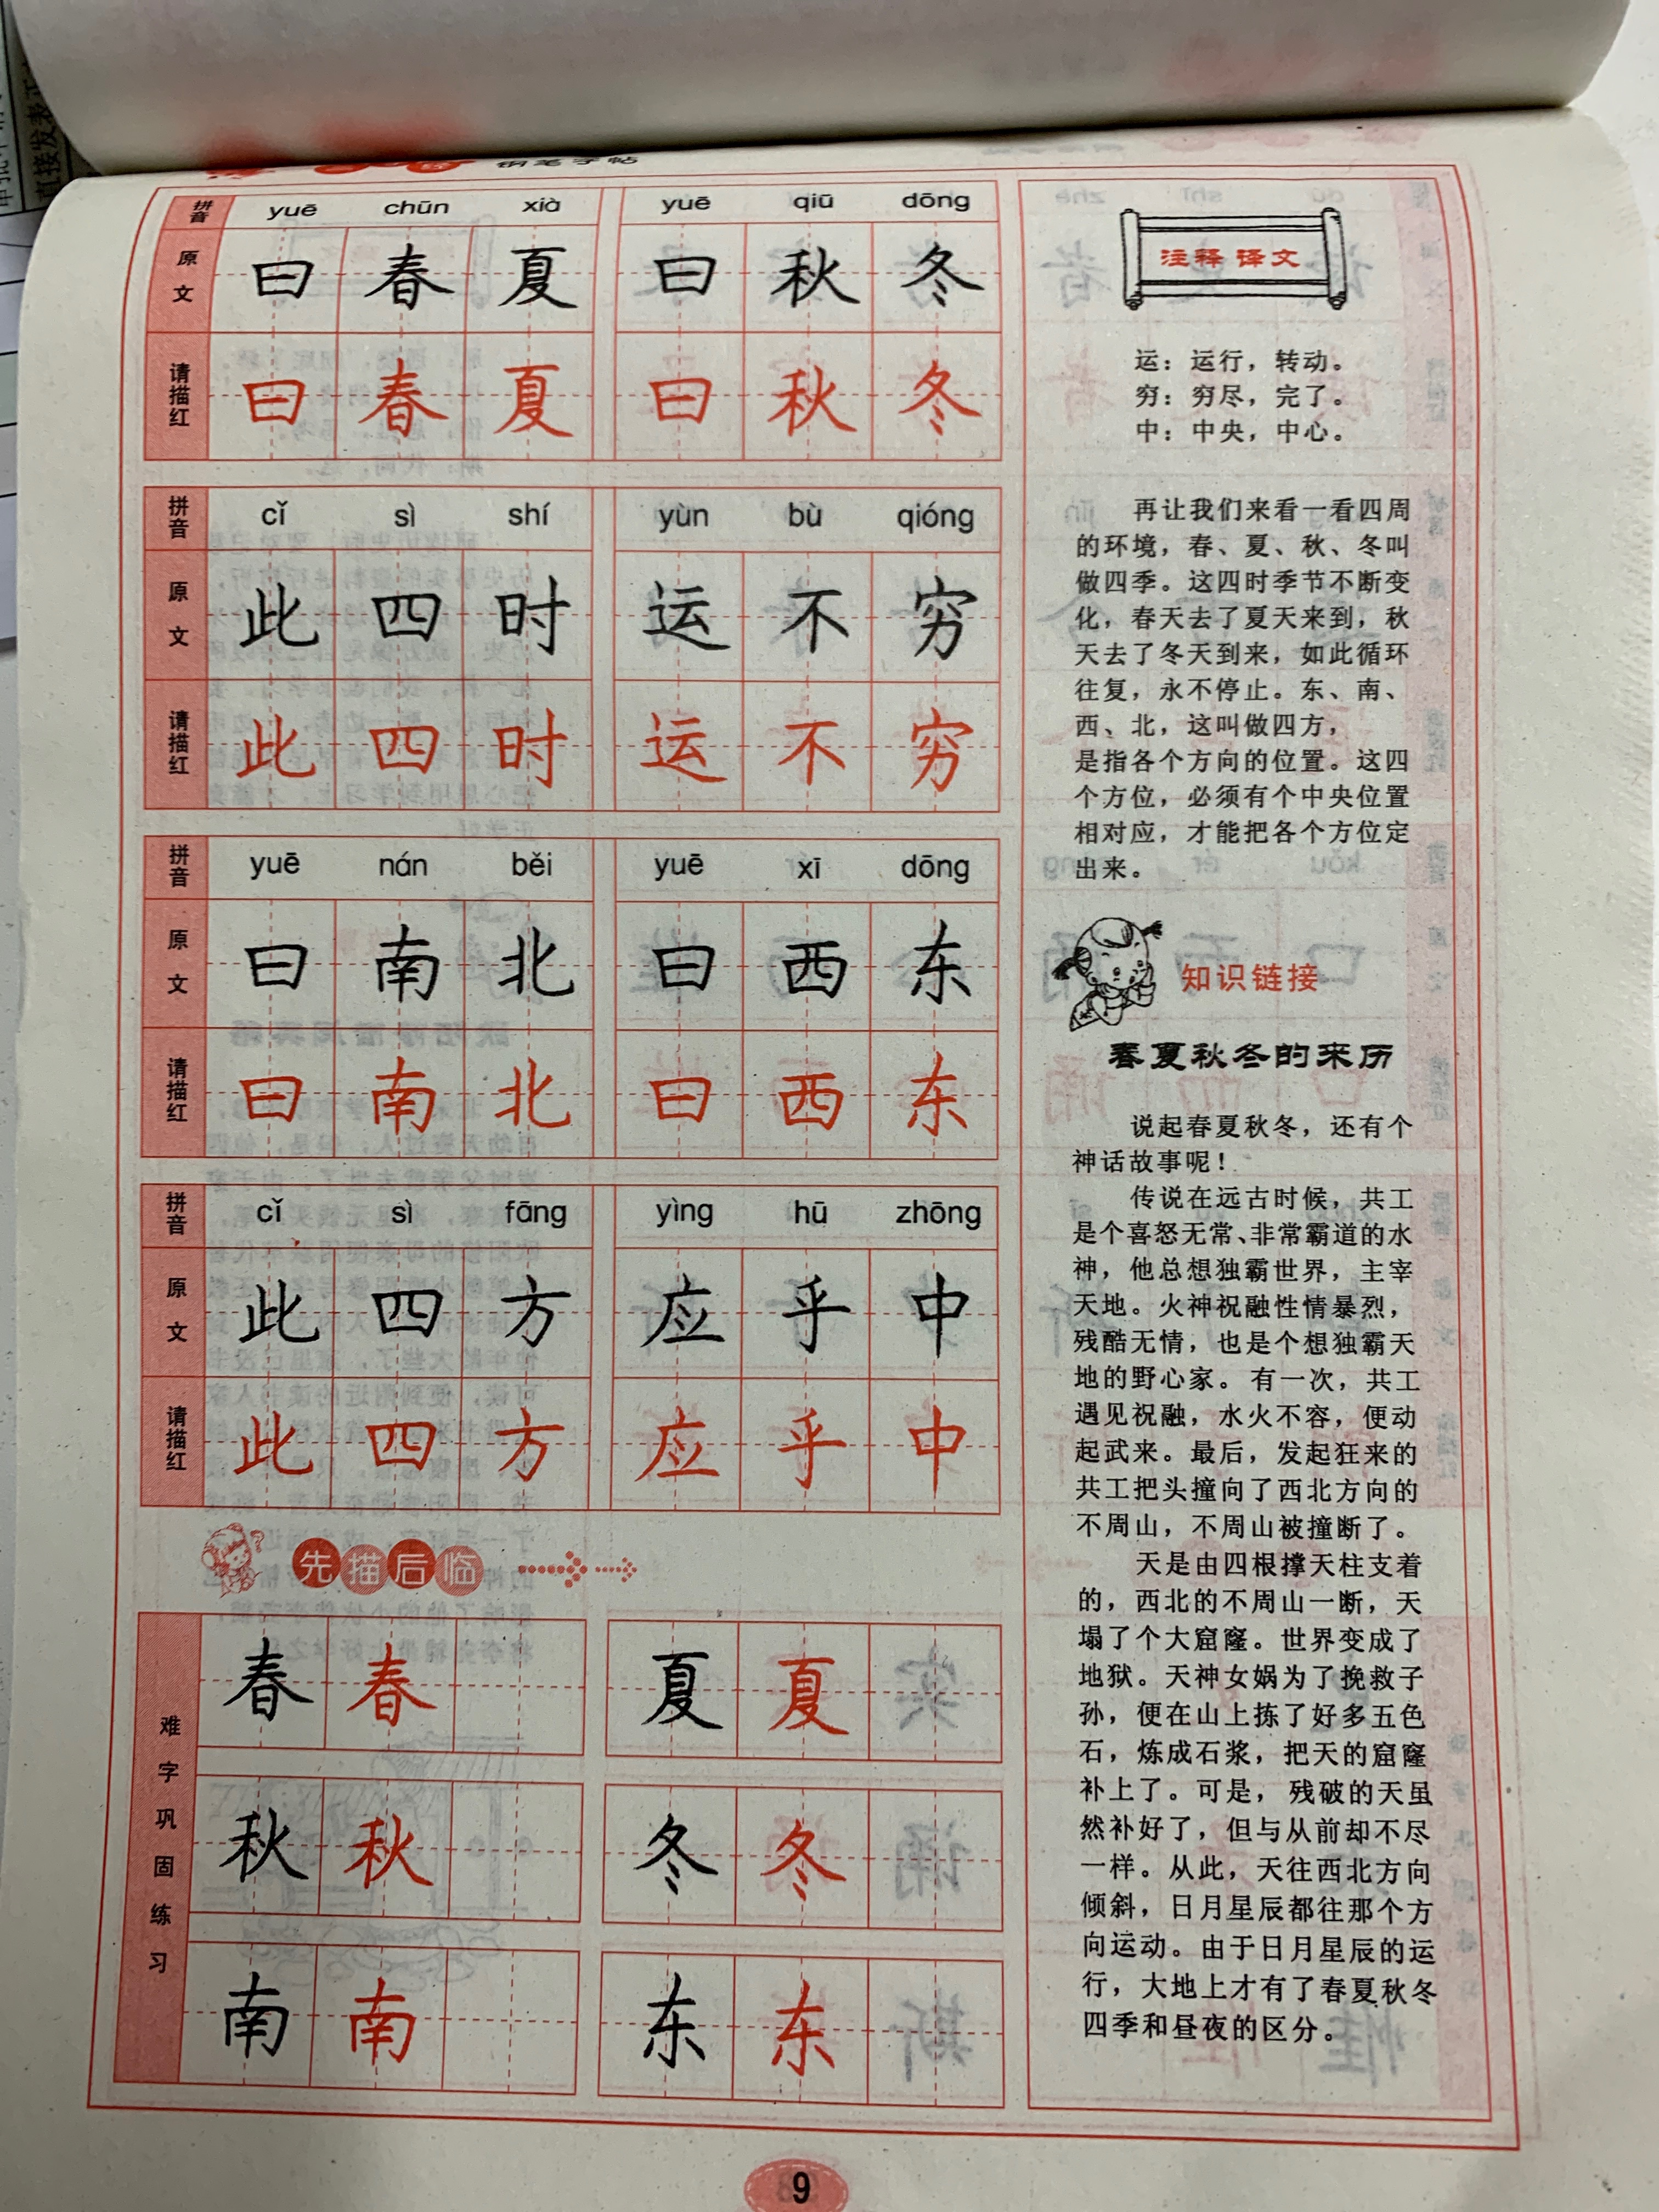 钢笔字帖
拼音 yuē chūn xià yuē qiū dōng
原文 曰春夏 曰秋冬
请描红 曰春夏 曰秋冬
拼音 cǐ sì shí yùn bù qióng
原文 此四时 运不穷
请描红 此四时 运不穷
拼音 yuē nán běi yuē xī dōng
原文 曰南北 曰西东
请描红 曰南北 曰西东
拼音 cǐ sì fāng yìng hū zhōng
原文 此四方 应乎中
请描红 此四方 应乎中
先描后临
难字巩固练习
春 春 夏 夏
秋 秋 冬 冬
南 南 东 东
注释 译文
运：运行，转动。
穷：穷尽，完了。
中：中央，中心。
再让我们来看一看四周
的环境，春、夏、秋、冬叫
做四季。这四时季节不断变
化，春天去了夏天来到，秋
天去了冬天到来，如此循环
往复，永不停止。东、南、
西、北，这叫做四方，
是指各个方向的位置。这四
个方位，必须有个中央位置
相对应，才能把各个方位定
出来。
知识链接
春夏秋冬的来历
说起春夏秋冬，还有个
神话故事呢！
传说在远古时候，共工
是个喜怒无常、非常霸道的水
神，他总想独霸世界，主宰
天地。火神祝融性情暴烈，
残酷无情，也是个想独霸天
地的野心家。有一次，共工
遇见祝融，水火不容，便动
起武来。最后，发起狂来的
共工把头撞向了西北方向的
不周山，不周山被撞断了。
天是由四根撑天柱支着
的，西北的不周山一断，天
塌了个大窟窿。世界变成了
地狱。天神女娲为了挽救子
孙，便在山上拣了好多五色
石，炼成石浆，把天的窟窿
补上了。可是，残破的天虽
然补好了，但与从前却不尽
一样。从此，天往西北方向
倾斜，日月星辰都往那个方
向运动。由于日月星辰的运
行，大地上才有了春夏秋冬
四季和昼夜的区分。
9